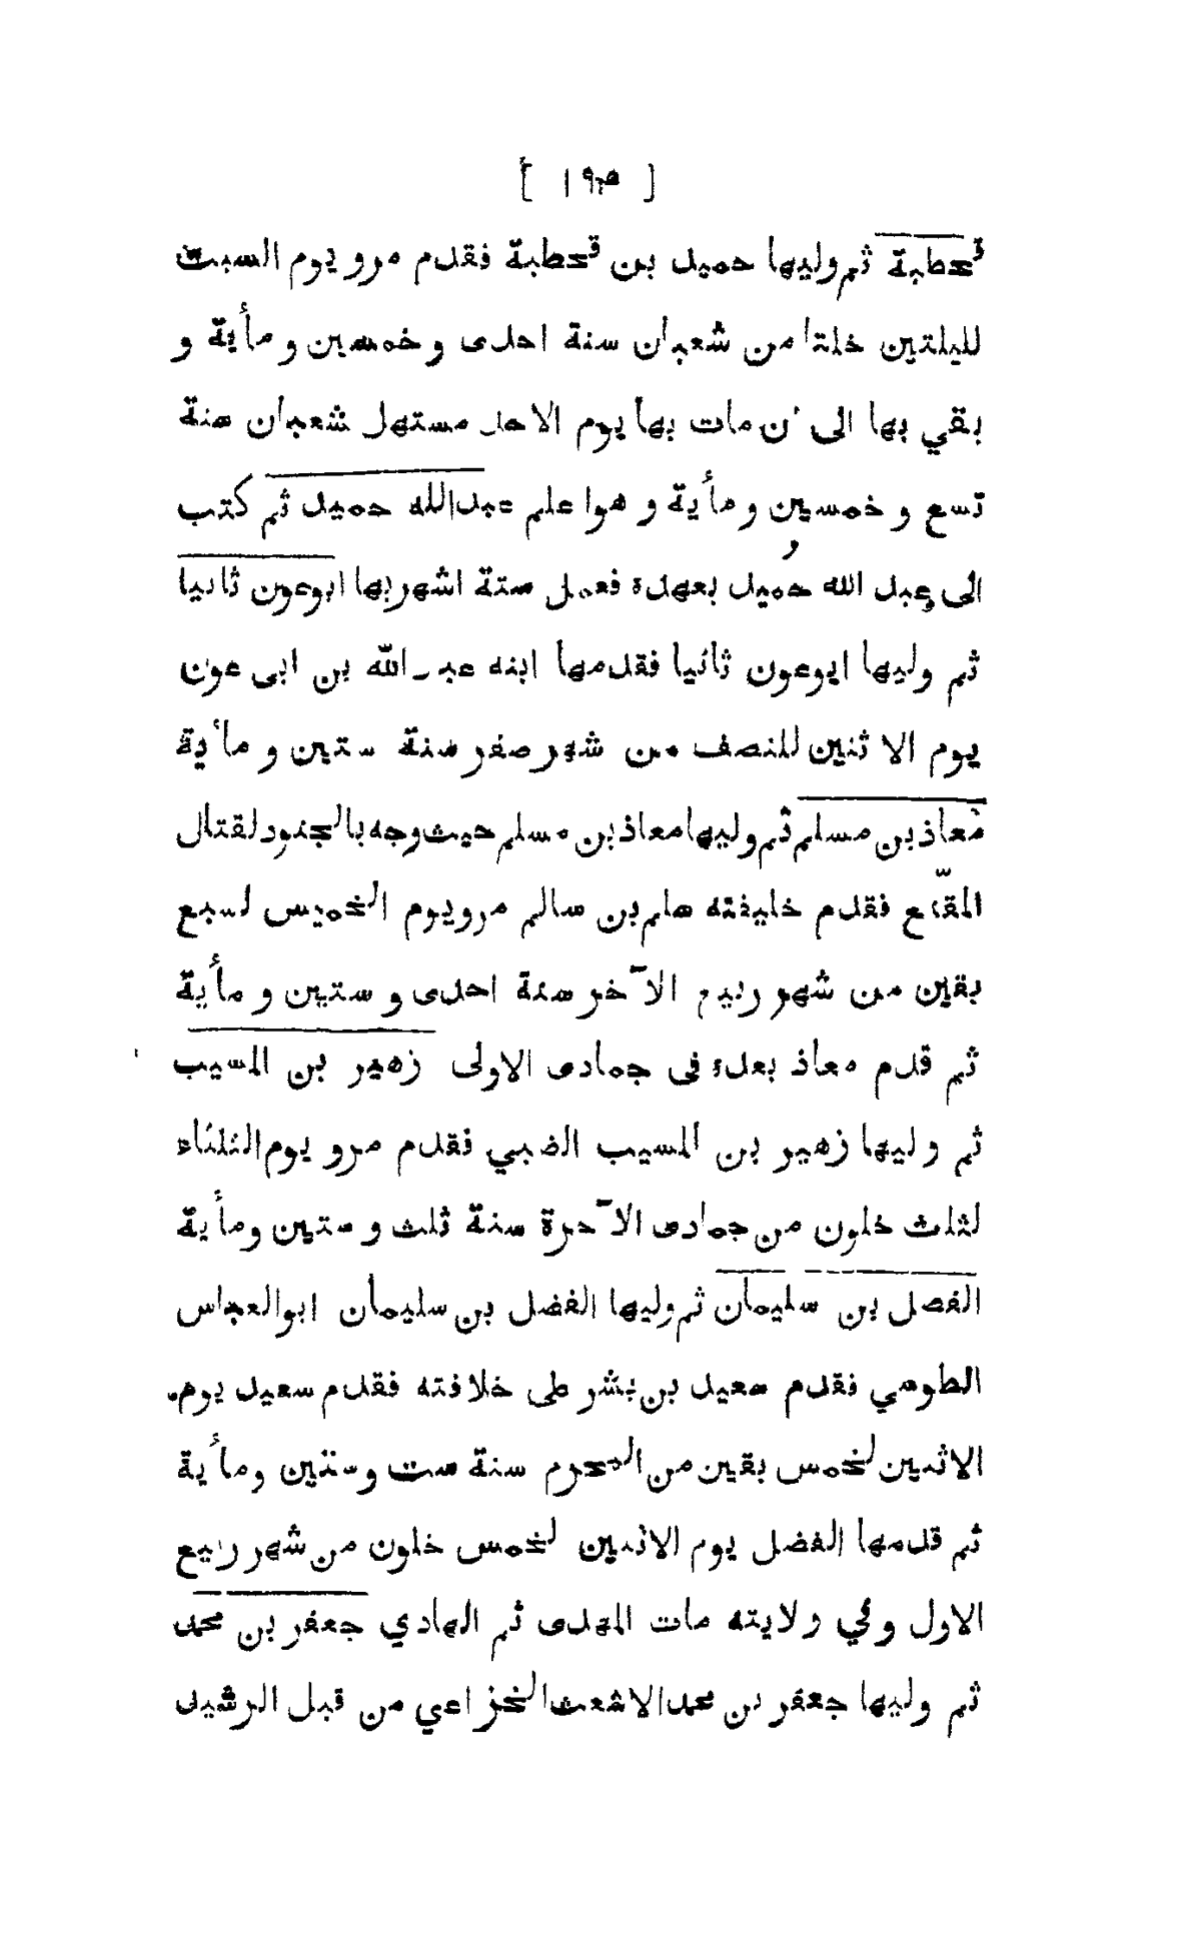 [ ١٩٥ ]
قحطبة ثم وليها حميد بن قحطبة فقدم مرو يوم السبت
لليلتين خلتا من شعبان سنة احدى و خمسين و مأية و
بقي بها الى ن مات بها يوم الاحد مستهل شعبان سنة
تسع و خمسين و مأية و هوا علم عبدالله حميد ثم كتب
الى عبد الله حميد بعهده فعمل ستة اشهربها ابوعون ثانيا
ثم وليها ابوعون ثانيا فقدمها ابنه عبد الله بن ابى عون
يوم الا ثنين للنصف من شهر صفر سنة ستين و مأية
معاذ بن مسلم ثم وليها معاذ بن مسلم حيث وجه بالجنود لقتال
المقنّع فقدم خليفته سلم بن سالم مرو يوم الخميس لسبع
بقين من شهر ربيع الآخر سنة احدى و ستين و مأية
ثم قدم معاذ بعده فى جمادى الاولى زهير بن المسيب
ثم وليها زهير بن المسيب الضبي فقدم مرو يوم الثلثاء
لثلث خلون من جمادى الآخرة سنة ثلث و ستين ومأية
الفضل بن سليمان ثم وليها الفضل بن سليمان ابوالعباس
الطوسي فقدم سعيد بن بشر على خلافته فقدم سعيد يوم
الاثنين لخمس بقين من المحرم سنة ست وستين ومأية
ثم قدمها الفضل يوم الاثنين لخمس خلون من شهر ربيع
الاول وفي ولايته مات المهدى ثم الهادي جعفر بن محمد
ثم وليها جعفر بن محمد الاشعث الخزاعي من قبل الرشيد